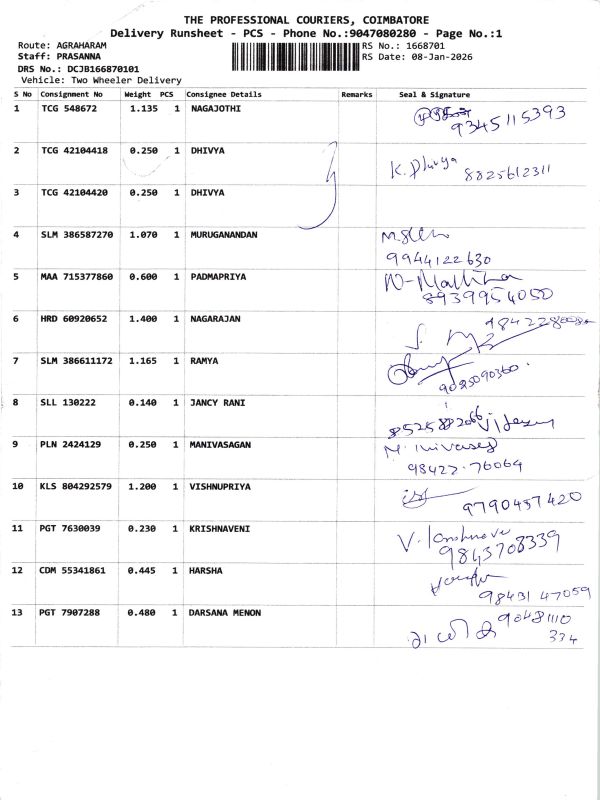 THE PROFESSIONAL COURIERS, COIMBATORE
Delivery Runsheet - PCS - Phone No.:9047080280 - Page No.:1
Route: AGRAHARAM RS No.: 1668701
Staff: PRASANNA RS Date: 08-Jan-2026
DRS No.: DCJB166870101
Vehicle: Two Wheeler Delivery
S No Consignment No Weight PCS Consignee Details Remarks Seal & Signature
1 TCG 548672 1.135 1 NAGAJOTHI
9345115393
2 TCG 42104418 0.250 1 DHIVYA
K. Dhivya 8825612311
3 TCG 42104420 0.250 1 DHIVYA
4 SLM 386587270 1.070 1 MURUGANANDAN
9944122630
5 MAA 715377860 0.600 1 PADMAPRIYA
8939954050
6 HRD 60920652 1.400 1 NAGARAJAN
7 SLM 386611172 1.165 1 RAMYA
9025090360
8 SLL 130222 0.140 1 JANCY RANI
9 PLN 2424129 0.250 1 MANIVASAGAN
98422-76064
10 KLS 804292579 1.200 1 VISHNUPRIYA
9790457420
11 PGT 7630039 0.230 1 KRISHNAVENI
9843708339
12 CDM 55341861 0.445 1 HARSHA
98431 47059
13 PGT 7907288 0.480 1 DARSANA MENON
90481110
334